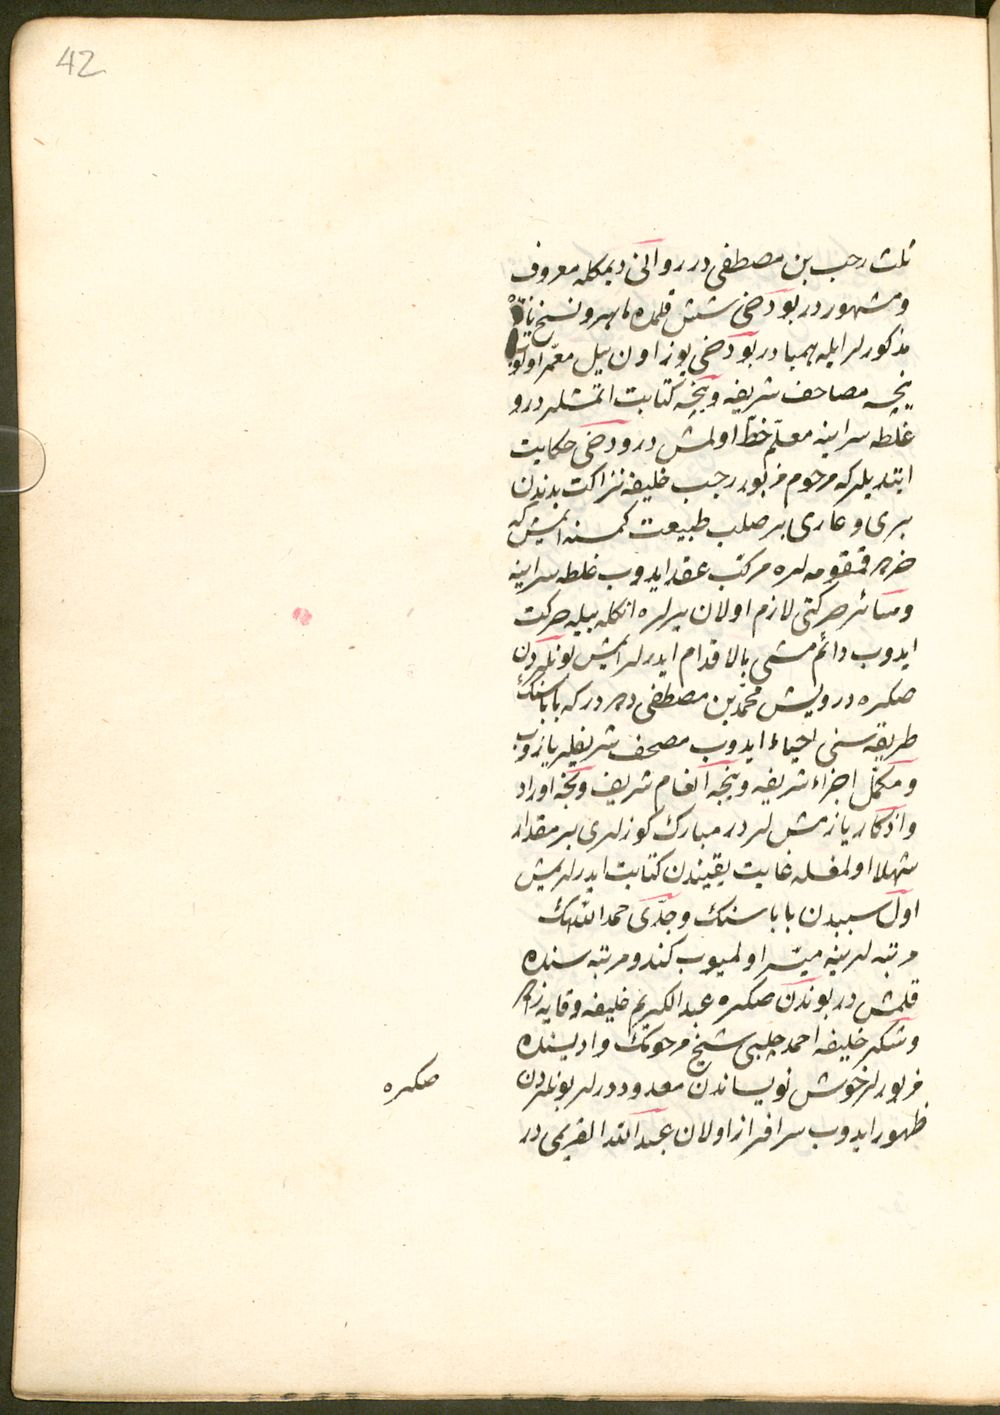 42
ثلث رجب بن مصطفى در روانى ديمكله معروف
ومشهور در بو دخى شش قلمده ماهر و نسخ يازان
مذكورلر ايله همپا در بو دخى يوز اون ييل معمّر اولوب
نيجه مصاحف شريفه ونيجه كتابت اتمشلردر و
غلطه سراينه معلّم خطّ اولمش در و دخى حكايت
ايتديلر كه مرحوم مزبور رجب خليفه نزاكت بدندن
برى وعارى بر صلب طبيعت كمسنه ايمش كه
مركب عقد ايدوب غلطه سراينه
وسائر حركتى لازم اولان يرلره انكله بيله حركت
ايدوب دائم مشى بالاقدام ايدرلر ايمش بونلردن
صكره درويش محمد بن مصطفى ده در كه باباسنك
طريقه سنى احياء ايدوب مصحف شريفلر يازوب
ومكمّل اجزاء شريفه ونيجه انعام شريف ونيجه اوراد
واذكار يازمشلردر مبارك كوزلرى بر مقدار
شهلا اولمغله غايت يقيندن كتابت ايدرلريمش
اول سببدن باباسنك وجدّى حمد اللهك
مرتبه لرينه ميسّر اولميوب كندو مرتبه سنده
قلمش در بوندن صكره عبد الكريم خليفه وقايه زاده
وشكر خليفه احمد چلبى شيخ مرحومك واديسنده
مزبورلر خوش نويساندن معدوددرلر بونلردن
ظهور ايدوب سرافراز اولان عبد الله القريمى در
صكره